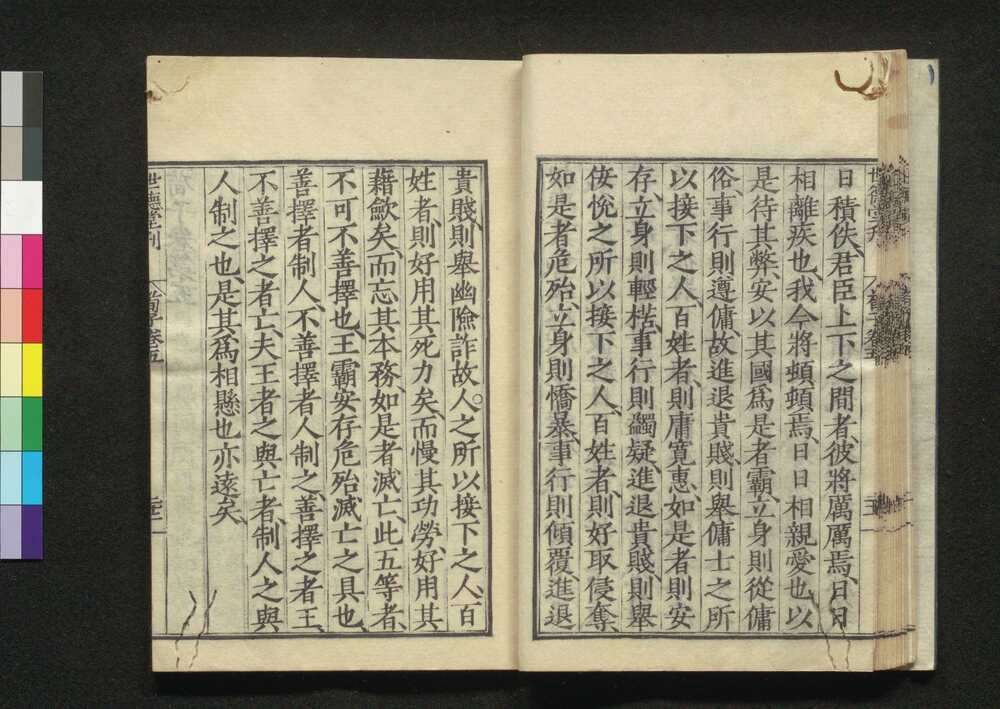 日積佚、君臣上下之間者、彼將厲厲焉、日日
相離疾也、我今將頓頓焉、日日相親愛也、以
是待其弊、安以其國爲是者霸、立身則從傭
俗、事行則遵傭故、進退貴賤、則舉傭士之所
以接下之人百姓者、則庸寬惠、如是者則安
存、立身則輕楛、事行則蠲疑、進退貴賤、則舉
佞悅之所以接下之人、百姓者、則好取侵奪、
如是者危殆、立身則憍暴、事行則傾覆、進退
貴賤、則舉幽險詐故人。之所以接下之人、百
姓者、則好用其死力矣、而慢其功勞、好用其
藉歛矣、而忘其本務、如是者滅亡、此五等者、
不可不善擇也、王霸安存危殆滅亡之具也、
善擇者制人、不善擇者人制之、善擇之者王、
不善擇之者亡、夫王者之與亡者、制人之與
人制之也、是其爲相懸也亦遠矣、
世德堂刊 荀子卷五